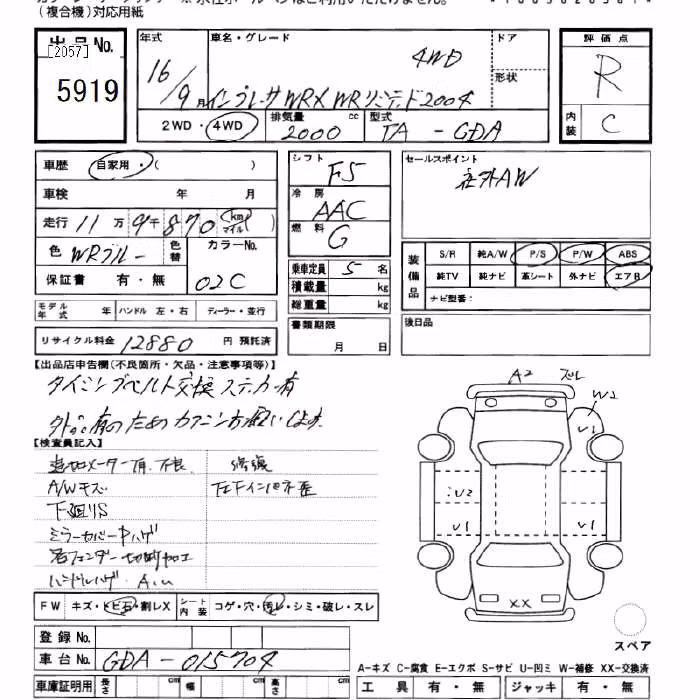 (複合機)対応用紙
出品No.
[2057]
5919
年式
車名・グレード
ドア
形状
評価点
16/9月
インプレッサWRX WRリミテッド2004
4WD
R
内装
C
2WD・4WD
排気量 2000 cc
型式 TA-GDA
車歴 自家用・( )
車検 年 月
走行 11万9千870 km マイル ( )
色 WRブルー
色替
カラーNo. 02C
保証書 有・無
シフト F5
冷房 AAC
燃料 G
乗車定員 5 名
積載量 kg
総重量 kg
セールスポイント
社外AW
装備品
S/R 純A/W P/S P/W ABS
純TV 純ナビ 革シート 外ナビ エアB
ナビ型番:
モデル年式 年 ハンドル 左・右 ディーラー・並行
リサイクル料金 12880 円 預託済
書類期限 月 日
後日品
【出品店申告欄(不良箇所・欠品・注意事項等)】
タイミングベルト交換 ステッカー有
外品有のためカクニン方願いします
【検査員記入】
追加メーター有 不良 修復
A/Wキズ 左Fインパネ歪
下廻りS
ミラーカバー中ハゲ
右フェンダー切断加工
ハンドルハゲ A.U
A2 ズレ
W2
U1
U2
U1
U1
XX
FW キズ・トビ石・割レX シート内装 コゲ・穴・汚レ・シミ・破レ・スレ
スペア
登録No.
車台No. GDA-015704
A-キズ C-腐食 E-エクボ S-サビ U-凹ミ W-補修 XX-交換済
車庫証明用 長さ cm 幅 cm 高さ cm
工具 有・無 ジャッキ 有・無